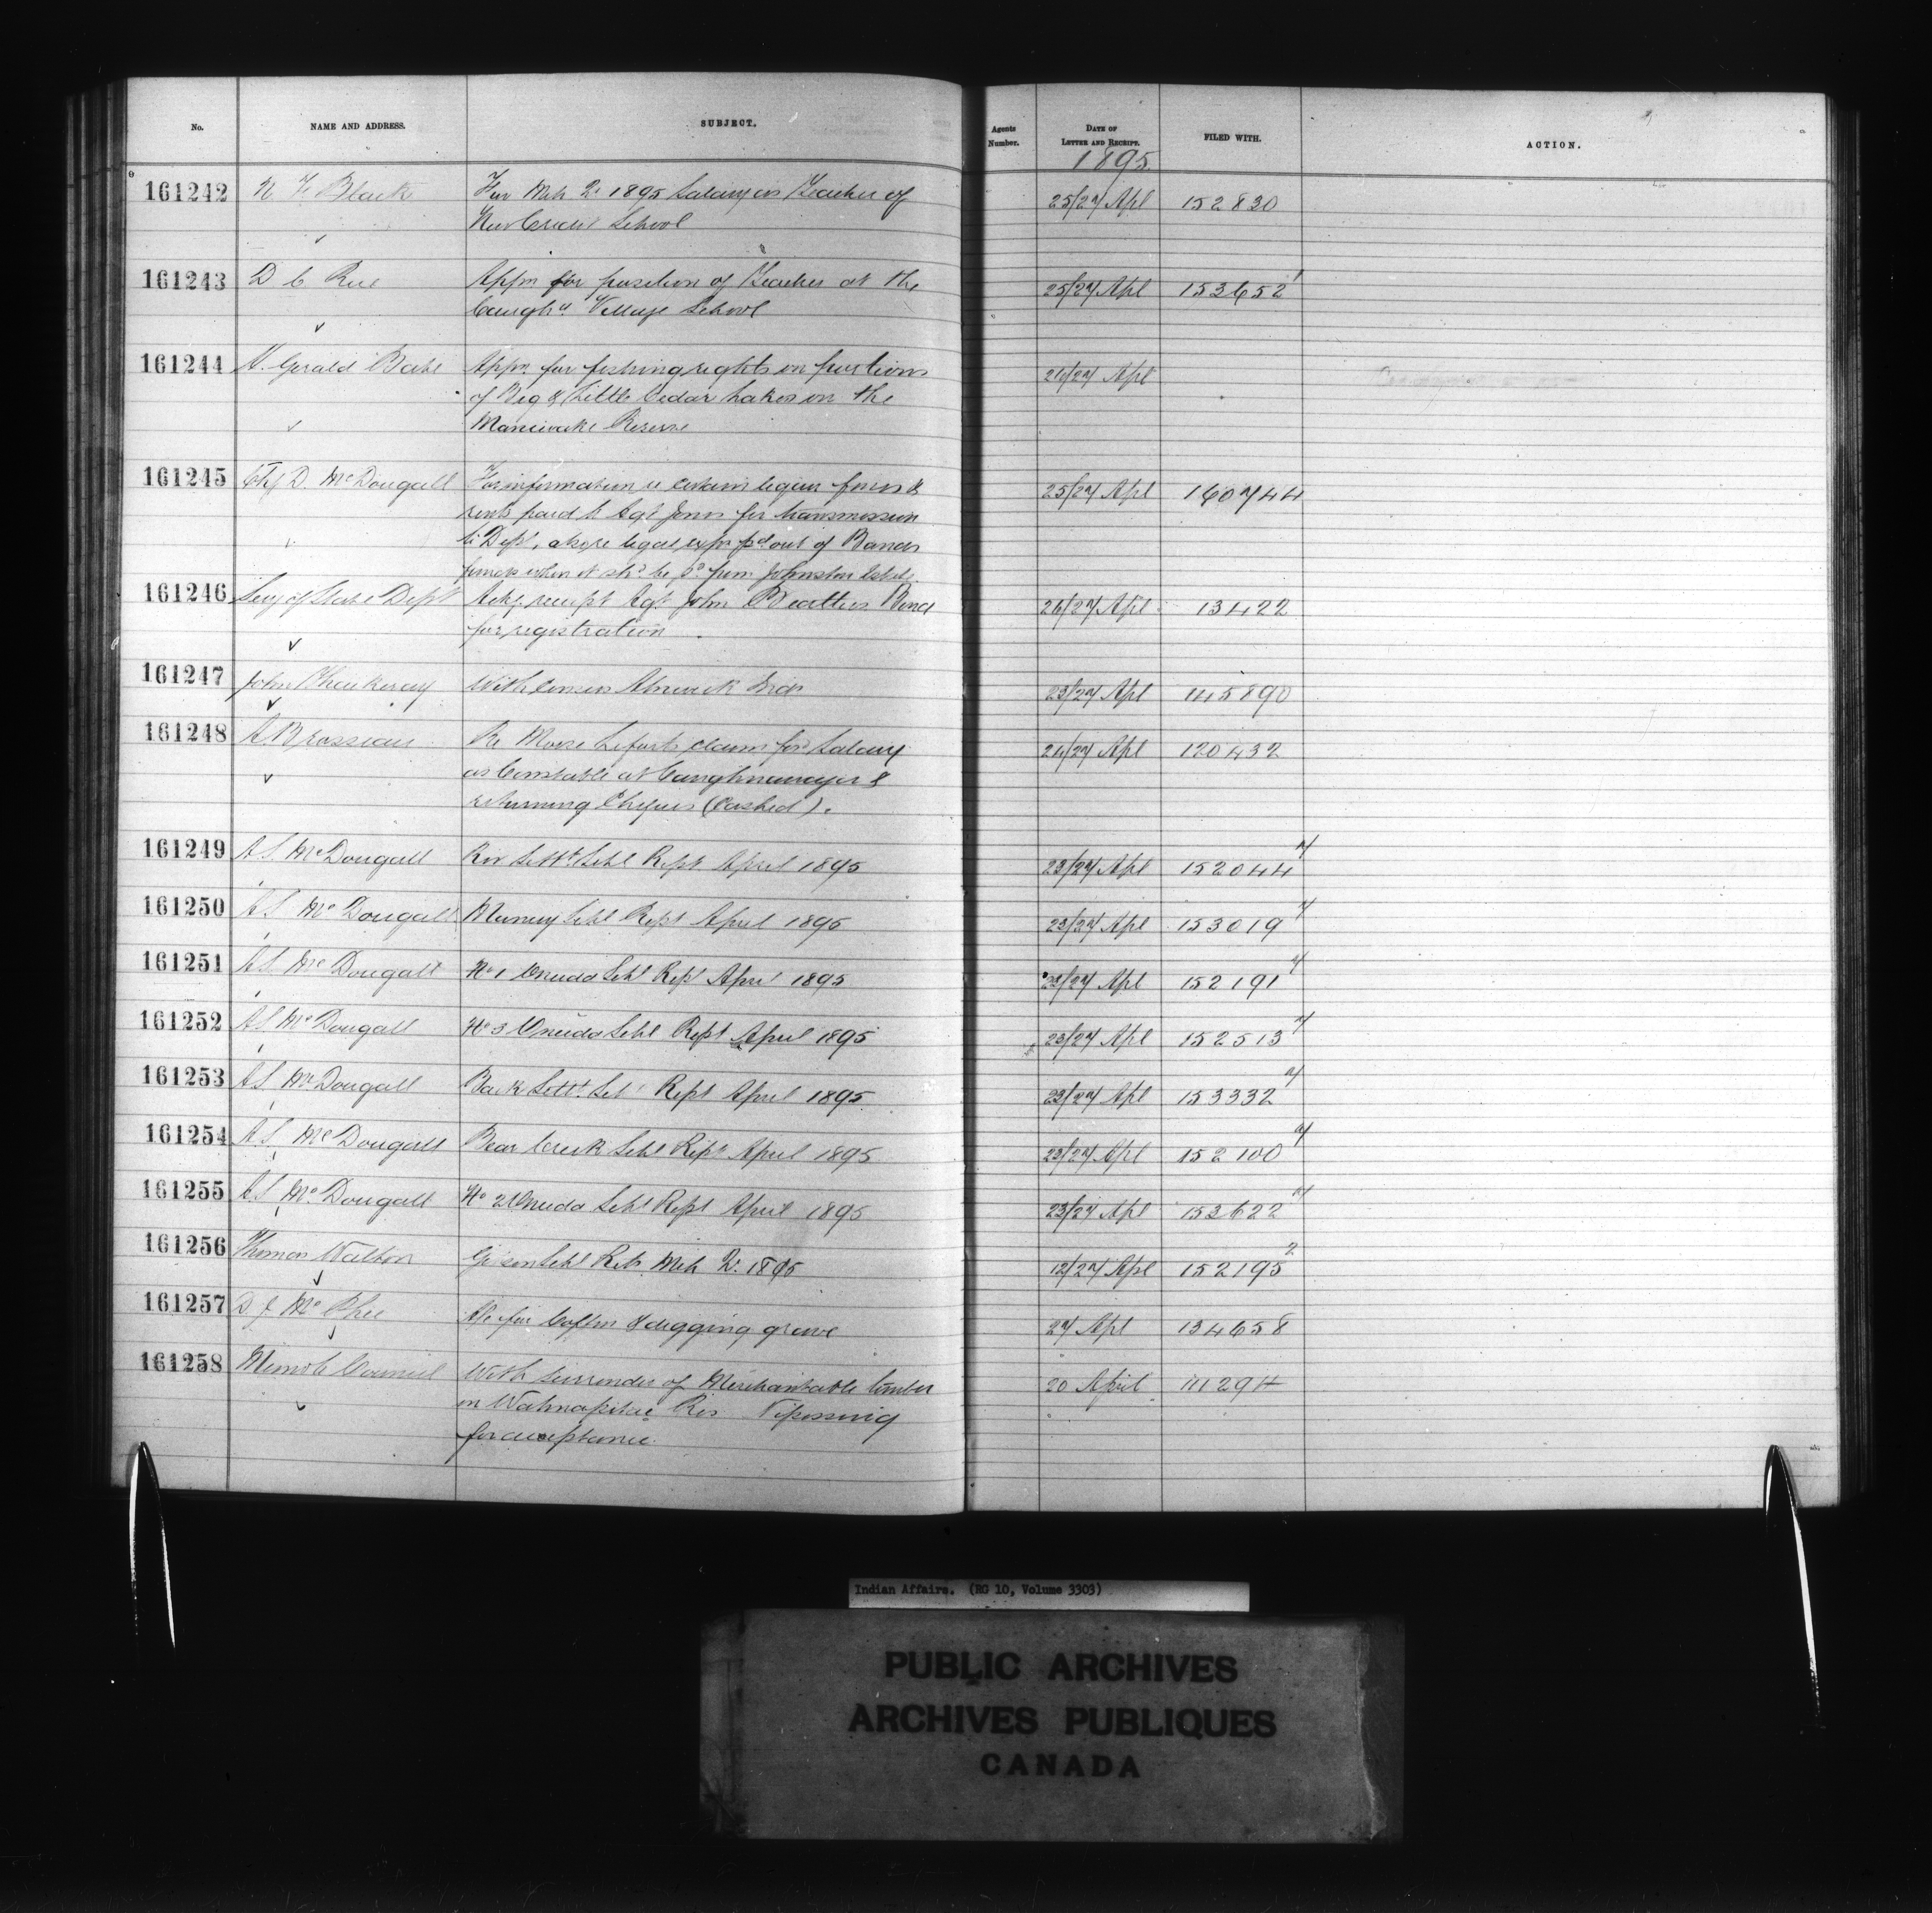 No. NAME AND ADDRESS. SUBJECT. Agents Number. DATE OF LETTER AND RECEIPT. FILED WITH. ACTION.
1895
161242 N. F. Black For Mch Qr 1895 Salary as Teacher of 25/27 Apl 152830
New Credit School
161243 D C Appn for position of Teacher at the 25/27 Apl 153652 1
Caugha. Village School
161244 Gerald Appn. for fishing rights on portions 26/27 Apl
of Big & Little Cedar Lakes on the
Maniwaki Reserve
161245 Chf D. McDougall For information re certain liquor fines & 25/27 Apl 160744
rents paid to Agt Jones for transmission
to Dept, also re legal exps pd out of Bands
funds when it shd be pd from Johnston Estate
161246 Secy of State Dept Ackg receipt Agt John Beatties Bond 26/27 Apl 13422
for registration
161247 John Thackeray With census Alnwick Inds 23/27 Apl 145890
161248 A. Brosseau Re Moise Leforts claim for Salary 24/27 Apl 120432
as Constable at Caughnawaga &
returning Cheques (Cashed).
161249 A S. McDougall Riv Settt. Schl Rept April 1895 23/27 Apl 152044 7
161250 A S. McDougall Muncey Schl Rept April 1895 23/27 Apl 153019 7
161251 A S. McDougall No 1 Oneida Schl Rept April 1895 23/27 Apl 152191 7
161252 A S. McDougall No 3 Oneida Schl Rept April 1895 23/27 Apl 152513 7
161253 A S. McDougall Back Settt. Schl Rept April 1895 23/27 Apl 153332 7
161254 A. S. McDougall Bear Creek Schl Rept April 1895 23/27 Apl 152100 7
161255 A. S. McDougall No 2 Oneida Schl Rept April 1895 23/27 Apl 153622 7
161256 Thomas Walton Gibson Schl Rets Mch Qr. 1895 12/27 Apl 152195 2
161257 D J McPhee A/c for Coffin & digging grave 27 Apl 134658
161258 Memo to Council With surrender of Merchantable timber 20 April 111294
on Wahnapitae Res Nipissing
for acceptance
Indian Affairs. (RG 10, Volume 3303)
PUBLIC ARCHIVES
ARCHIVES PUBLIQUES
CANADA